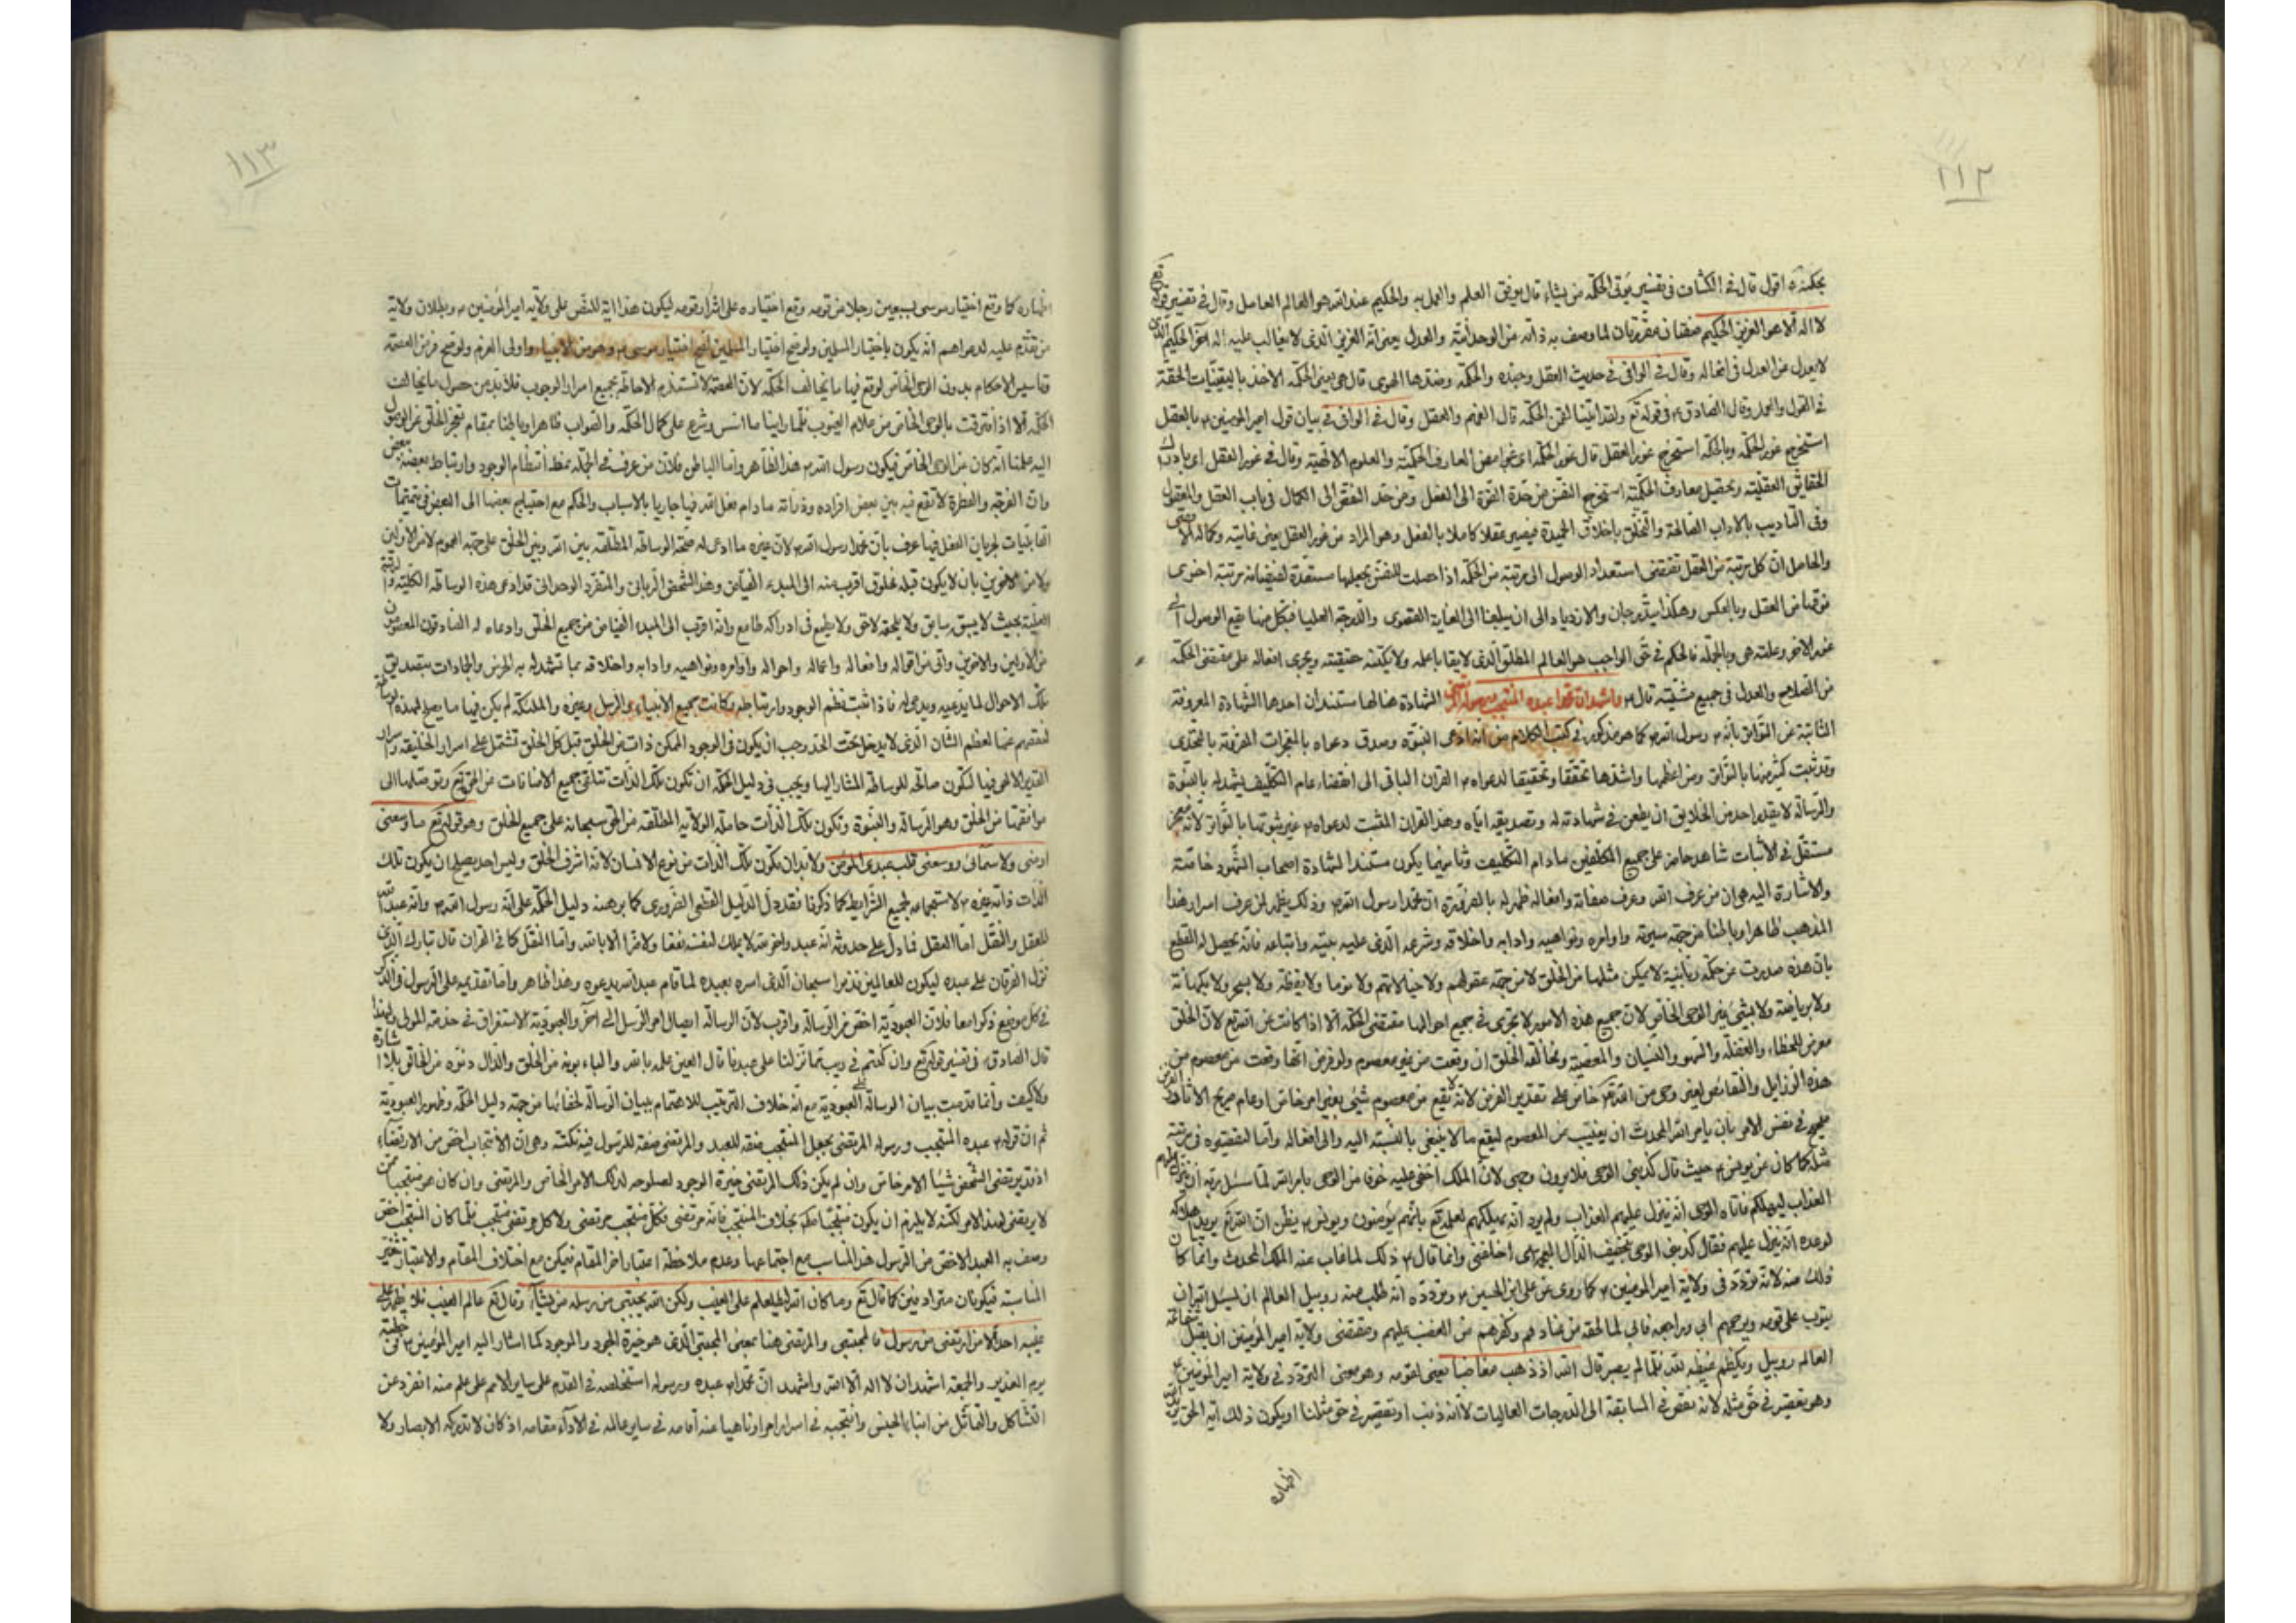 ١١٢
بحكمته اقول قال في الكشاف في تفسير يؤتى الحكمة من يشاء قال يوفق العلم والعمل به والحكيم عند الله هو العالم العامل وقال في تفسير قوله تع
لا اله الا هو العزيز الحكيم صفتان مقررتان لما وصف به ذاته من الوحدانية والعدل يعنى انه العزيز الذى لا يغالبه عليه اله اخر الحكيم الذى
لا يعدل عن العدل في افعاله وقال في الوافى في حديث العقل وجنده والحكمة وضدها الهوى قال هي يعنى الحكمة الاخذ باليقينيات الحقة
في القول والعمل وقال الصادق ع في قوله تع ولقد اتينا لقمن الحكمة قال الفهم والعقل وقال في الوافى في بيان قول امير المومنين ع بالعقل
استخرج غور الحكمة وبالحكمة استخرج غور العقل قال غور الحكمة اى غوامض المعارف الحكمية والعلوم الالهية وقال في غور العقل اى بادراك
الحقايق العقلية وتحصيل معارف الحكمية استخرج النفس من حد القوة الى الفعل ومن حد النقص الى الكمال في باب العقل والمعقول
وفى التاديب بالاداب الصالحة والتخلق باخلاق الحميدة فيصير عقلا كاملا بالفعل وهو المراد من غور العقل يعنى غايته وكماله الاقصى
والحاصل ان كل مرتبة من العقل تقتضى استعداد الوصول الى مرتبة من الحكمة اذا حصلت للنفس يجعلها مستعدة لفيضان مرتبة اخرى
فوقها من العقل وبالعكس وهكذا يتدرجان والازدياد الى ان يبلغا الى الغاية القصوى والدرجة العليا فبكل منهما يقع الوصول الى
غور الاخر وعلته هى وبالجملة فالحكم في حق الواجب هو العالم المطلق الذى لا يقاس باعله ولا يكتنه حقيقته ويجرى افعاله على مقتضى الحكمة
من الصلاح والعدل في جميع مشيته قال ع واشهد ان محمدا عبده المنتجب ورسوله المرتضى الشهادة هنا لها مستندان احدهما الشهادة المعروفة
الثابتة عن التواتر بانه ص رسول الله ص كما هو مذكور في كتب الكلام من انه ادعى النبوة وصدق دعواه بالمعجزات المقرونة بالتحدى
وقد ثبت كثير منها بالتواتر ومن اعظمها واشدها تحققا وتحقيقا لدعواه ص القران الباقى الى انقضاء عام التكليف يشهد له بالنبوة
والرسالة لا يقدر احد من الخلايق ان يطعن في شهادته له وتصديقه اياه وهذا القران المثبت لدعواه ص غير ثبوتها بالتواتر لانه معجز
مستقل في الاثبات شاهد حاضر على جميع المكلفين مادام التكليف وثانيهما يكون مستندا لشهادة اصحاب الشهود خاصة
والاشارة اليه هو ان من عرف الله وعرف صفاته وافعاله ظهر له بالضرورة ان محمدا رسول الله ص وذلك يظهر لمن عرف اسرار هذا
المذهب ظاهرا وباطنا من جهة سيرته واوامره ونواهيه وادابه واخلاقه وشرعه الذى عليه بنيه واتباعه فانه يحصل له القطع
بان هذه صدرت عن حكمة ربانية لا يمكن مثلها من الخلق لا من جهة عقولهم ولا خيالاتهم ولا نوما ولا يقظة ولا بسحر ولا بكهانة
ولا برياضة ولا بشئ غير الوحى الخاص لان جميع هذه الامور لا تجرى في جميع احوالها مقتضى الحكمة الا اذا كانت من الله تع لان الخلق
معرض للخطاء والغفلة والسهو والنسيان والمعصية ومخالفة الخلق ان وقعت من غير معصوم ولو فرض انها وقعت من معصوم من
هذه الرذايل والنقائص لغير وحى من الله تع خاص على تقدير الفرض لانه لا يقع من معصوم شئ بغير امر خاص او عام
في نفس الامر بان يامر الله المحدث ان يغيب عن المعصوم ليقع ما لا ينبغى بالنسبة اليه والى افعاله واما لتقصيره في رتبة
مثله كما كان عن يونس ع حيث قال كذبنى الوحى فلا يرون وجهى لان الملك اخفى عليه حرفا من الوحى بامر الله لما سئل ربه ان ينزل عليهم
العذاب ليهلكهم فاتاه الوحى انه ينزل عليهم العذاب ولم يرد انه يهلكهم لعلمه تع بانهم يؤمنون ويونس ع يظن ان الله تع يريد هلاكهم
لوعده انه ينزل عليهم فقال كذبنى الوحى بتخفيف الذال المعجمة اى اخلفنى وانما قال ع ذلك لما غاب عنه الملك المحدث وانما كان
ذلك منه لانه تردد في ولاية امير المومنين ع كما روى عن على ابن الحسين ع وتردده انه طلب منه روبيل العالم ان يسئل الله ان
يتوب على قومه ويرحمهم ابى ويراجعه فابى لما لحقه من عنادهم وكفرهم من الغضب عليهم ومقتضى ولاية امير المومنين ان يقبل شفاعة
العالم روبيل ويكظم غيظه لله فلما لم يصبر قال الله اذ ذهب مغاضبا يعنى لقومه وهو معنى التردد في ولاية امير المؤمنين ع
وهو تقصير في حق مثله لانه نقص في المسابقة الى الدرجات العاليات لا انه ذنب او تقصير في حق مثلنا او يكون ذلك اية الحق
اظهاره
١١٣
اظهاره كما وقع اختيار موسى سبعين رجلا من قومه وقع اختياره على اشرار قومه ليكون هذا اية للنص على ولاية امير المؤمنين ع وبطلان ولاية
من تقدم عليه لدعواهم انه يكون باختيار المسلمين ولو صح اختيار المسلمين لصح اختيار موسى ع وهو من الانبياء واولى العزم ولو صح فرض العصمة
وتاسيس الاحكام بدون الوحى الخاص لوقع فيها ما يخالف الحكمة لان العصمة لا تستلزم الاحاطة بجميع اسرار الوجوب فلا بد من حصول ما يخالف
الحكمة الا اذا اقترنت بالوحى الخاص من علام الغيوب فلما راينا ما اسس وشرع على كمال الحكمة والصواب ظاهرا وباطنا بمقام تعجز الخلق عن الوصول
اليه علمنا انه كان عن الوحى الخاص فيكون رسول الله ص هذا الظاهر واما الباطن فلان من عرف في الجملة نمط انتظام الوجود وارتباط بعضه ببعض
وان الفرجة والفطرة لا تقع فيه بين بعض افراده وذراته مادام فعل الله فيها جاريا بالاسباب والحكم مع احتياج بعضها الى البعض في تتممات
القابليات لجريان الفعل فيها عرف بان محمدا رسول الله ص لان غيره ما ادعى له صحة الوساطة المطلقة بين الله وبين الخلق على جهة العموم لا من الاولين
ولا من الاخرين بان لا يكون قبله مخلوق اقرب منه الى المبدء الفياض وهذا الشخص الربانى والمتفرد الوحدانى قد ادعى هذه الوساطة الكلية والرتبة
العلية بحيث لا يسبقه سابق ولا يلحقه لاحق ولا يطمع في ادراكه طامع وانه اقرب الى المبدء الفياض من جميع الخلق وادعاه له الصادقون المعصومون
من الاولين والاخرين واتى من اقواله وافعاله واعماله واحواله واوامره ونواهيه وادابه واخلاقه بما تشهد له به الخرس والجمادات بتصديق
تلك الاحوال لما يدعيه ويدعى له فاذا ثبت نظم الوجود وارتباطه وكانت جميع الانبياء والرسل وغيره والملئكة لم يكن فيها ما يصلح لهذه الوساطة
لنقصهم عنها لعظم الشان الذى لا يدخل تحت الحد وجب ان يكون في الوجود الممكن ذات من الخلق قبل كل الخلق تشتمل على اسرار الخليقة واسرار
القدير الالهى فيها لتكون صالحة للوساطة المشار اليها ويجب في دليل الحكمة ان تكون تلك الذات تتلقى جميع الافاضات عن الحق تع وتوصلها الى
مواقعها من الخلق وهو الرسالة والنبوة وتكون تلك الذات حاملة الولاية المطلقة من الحق سبحانه على جميع الخلق وهو قوله تع ما وسعنى
ارضى ولا سمائى ووسعنى قلب عبدى المؤمن ولا بد ان يكون تلك الذات من نوع الانسان لانه اشرف الخلق وليس احد يصلح ان يكون تلك
الذات ذاته غيره ص لاستجماعه لجميع الشرايط كما ذكرنا فقد دل الدليل القطعى الضرورى كما برهنه دليل الحكمة على انه رسول الله ص وانه عبد الله
للعقل والنقل اما العقل فما دل على حدوثه انه عبد وانه لا يملك لنفسه نفعا ولا ضرا الا بالله واما النقل كما في القران قال تبارك الذى
نزل الفرقان على عبده ليكون للعالمين نذيرا سبحان الذى اسرى بعبده لما قام عبد الله يدعوه وهذا ظاهر واما تقديمه على الرسول في الذكر
في كل موضع ذكرا معا فلان العبودية اخص من الرسالة واقرب لان الرسالة ايصال امر المرسل الى اخر والعبودية الاستغراق في خدمة المولى ولهذا
قال الصادق ع في تفسير قوله تع وان كنتم في ريب مما نزلنا على عبدنا قال العين علمه بالله والباء بونه من الخلق والدال دنوه من الخالق بلا اشارة
ولا كيف وانما قدمت بيان الرسالة على العبودية مع انه خلاف الترتيب للاهتمام ببيان الرسالة لخفائها من جهة دليل الحكمة وظهور العبودية
ثم ان قوله ع عبده المنتجب ورسوله المرتضى بجعل المنتجب صفة للعبد والمرتضى صفة للرسول فيه نكتة وهى ان الانتجاب اخص من الارتضاء
اذ قد يرتضى الشخص شيئا لامر خاص وان لم يكن ذلك المرتضى خيرة الوجود لصلوحه لذلك الامر الخاص والمرتضى وان كان هو منتجب ممن
لا يرتضى لهذا الامر لكنه لا يلزم ان يكون منتجبا مطلقا بخلاف المنتجب فانه مرتضى فكل منتجب مرتضى ولا كل مرتضى منتجب فلما كان المنتجب اخص
وصف به العبد الاخص من الرسول هذا المناسب مع اجتماعهما وعدم ملاحظة اعتبار اخر المقام فيمكن مع اختلاف المقام والاعتبار تتغير
المناسبة فيكونان مترادفين كما قال تع وما كان الله ليطلعكم على الغيب ولكن الله يجتبى من رسله من يشاء وقال تع عالم الغيب فلا يظهر على
غيبه احدا الا من ارتضى من رسول فالمجتبى والمرتضى هنا بمعنى المجتبى الذى هو خيرة الجود والوجود كما اشار اليه امير المؤمنين ع في خطبة
يوم الغدير والجمعة اشهد ان لا اله الا الله واشهد ان محمدا عبده ورسوله استخلصه في القدم على ساير الامم على علم منه انفرد عن
التشاكل والتماثل من ابناء الجنس وانتجبه في اسراره امرا وناهيا عنه اقامه في ساير عالمه في الاداء مقامه اذ كان لا تدركه الابصار ولا